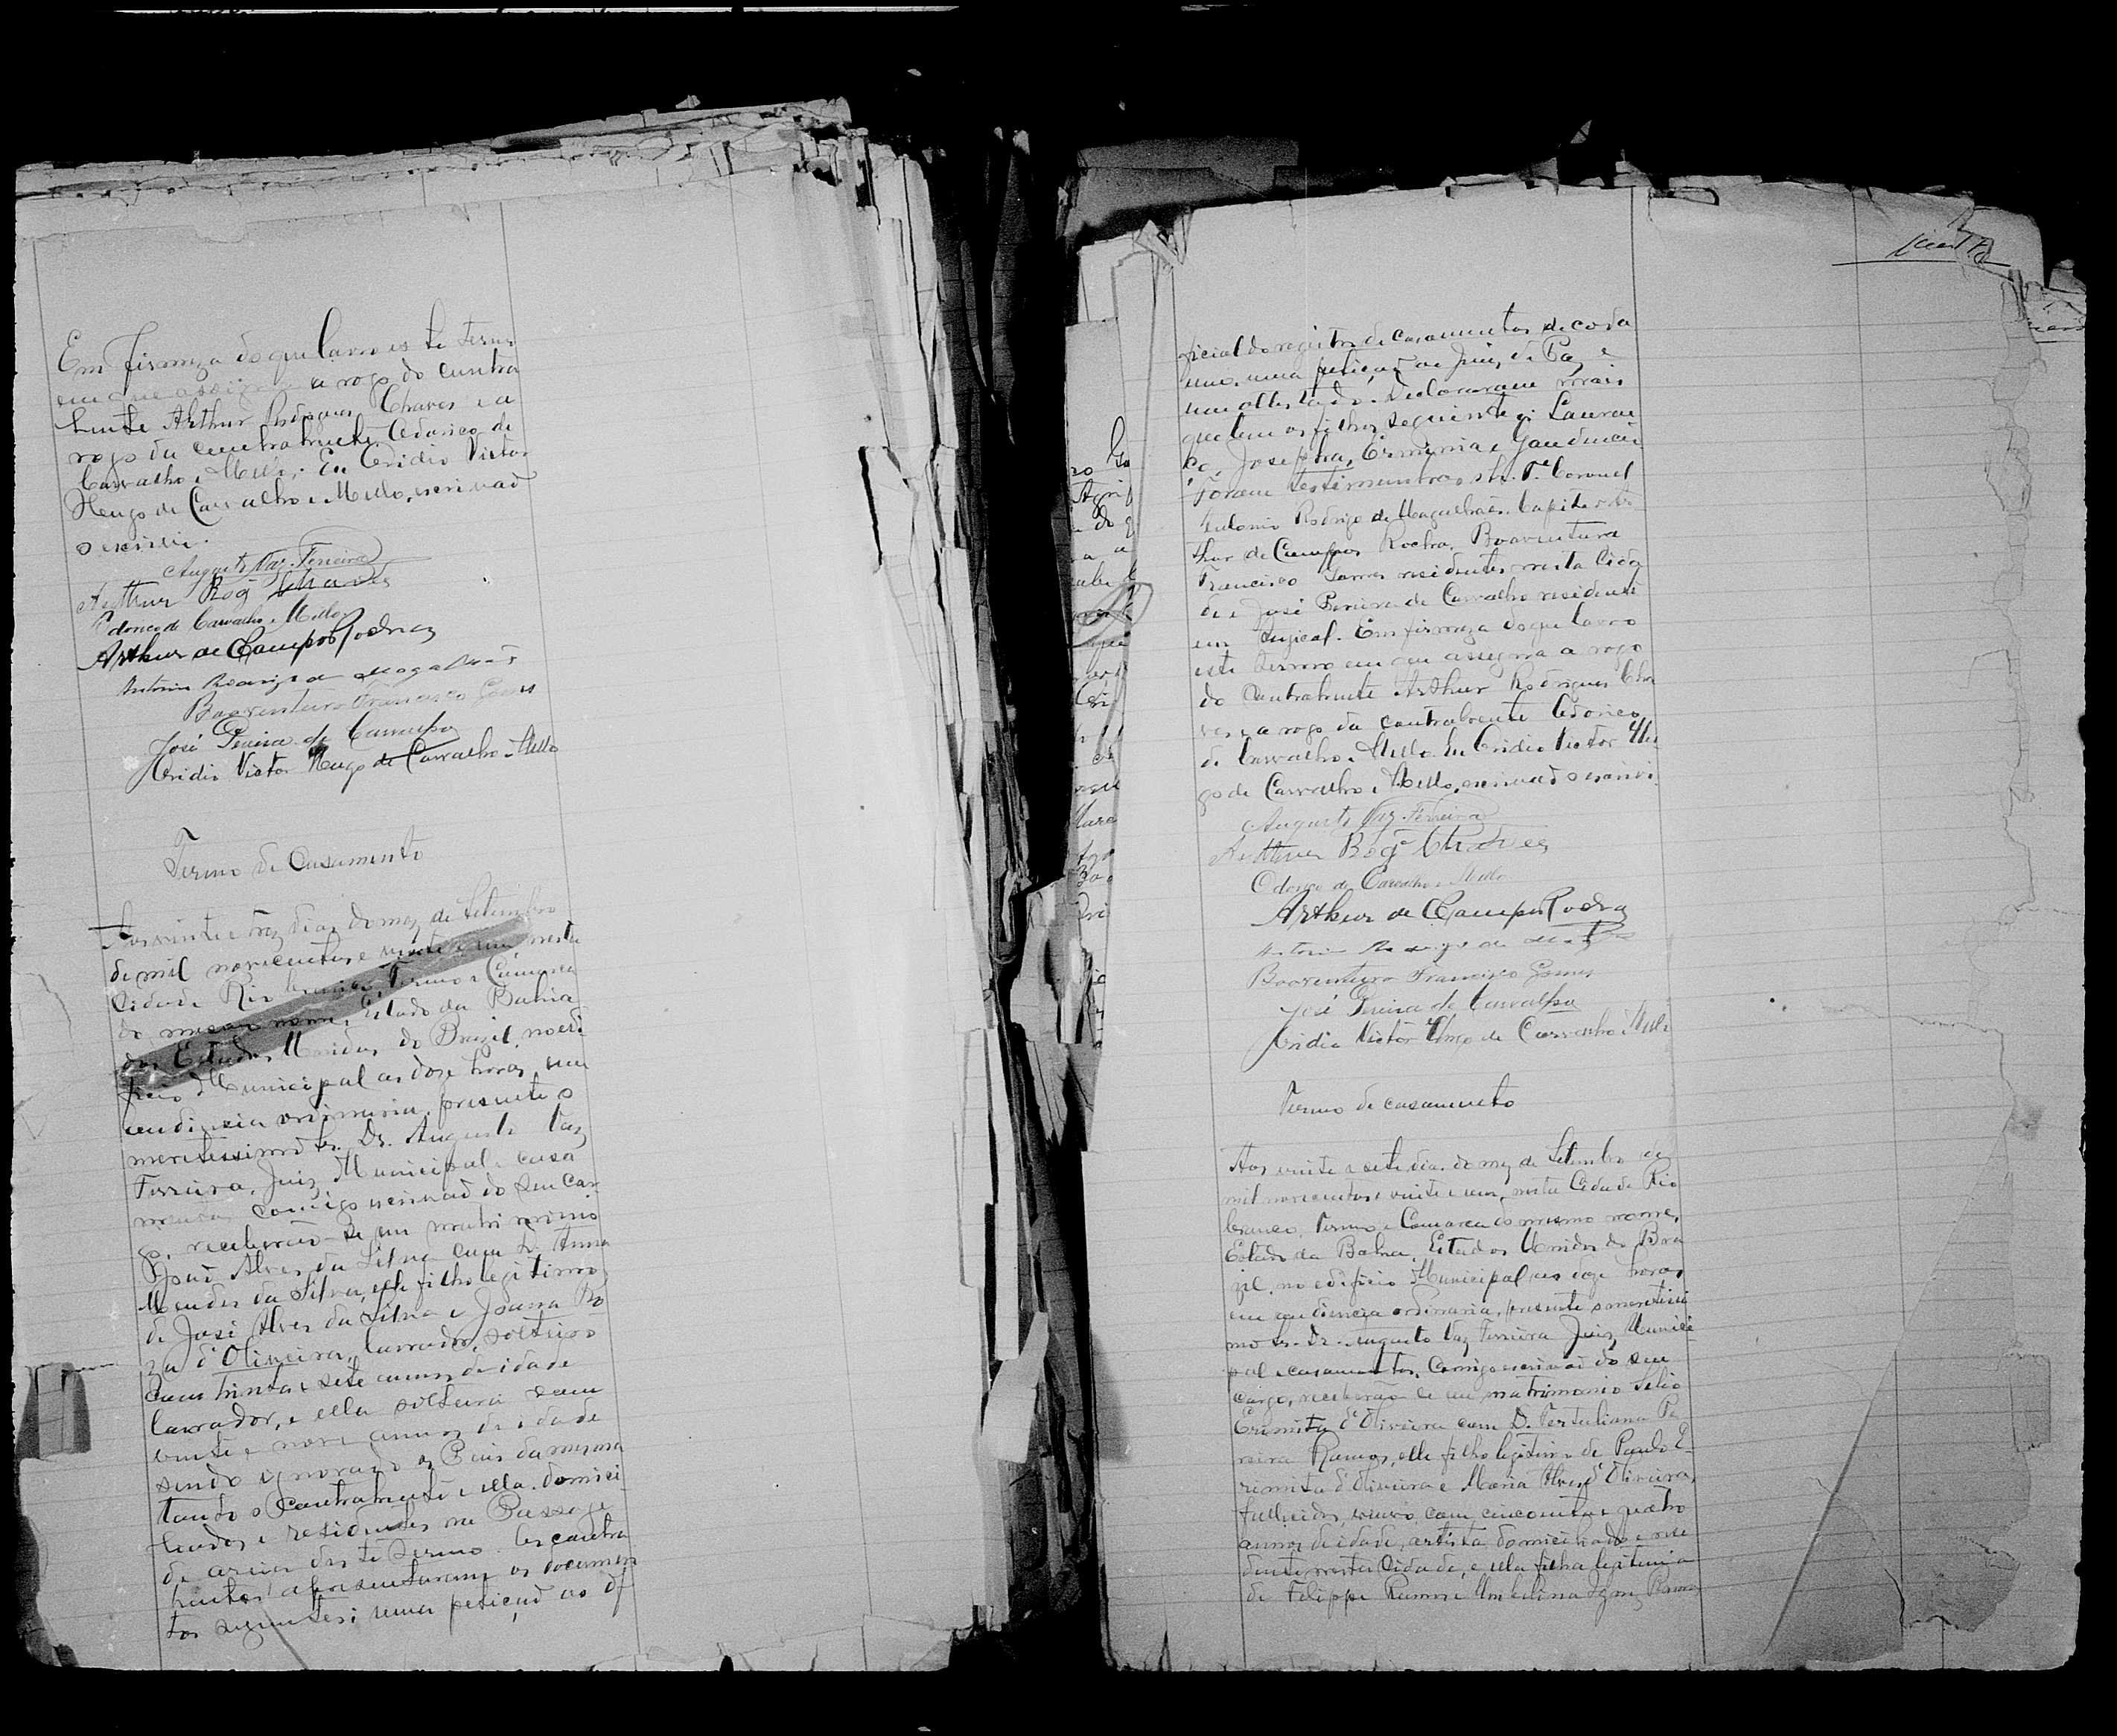 Em firmeza do que lavro este termo
em que assigna a rogo do contra
hente Arthur Rodrigues Chaves e a
rogo da contrahente Odorico de
Carvalho e Mello. Eu Eridio Victor
Hugo de Carvalho e Mello, escrivaõ
o escrivi.
Augusto Vaz Ferreira
Arthur Rog Chaves
Odorico de Carvalho e Mello
Arthur de Campos Rocha
Antonio Rodrigo de Magalhães
Boaventura Francisco Gomes
José Pereira de Carvalho
Eridio Victor Hugo de Carvalho e Mello
Termo de Casamento
Aos vinte e trez dias do mez de Setembro
de mil novecentos e vinte e um nesta
Cidade Rio branco, Termo e Comarca
do mesmo nome, Estado da Bahia
dos Estados Unidos do Brazil, no edi
ficio Municipal as doze horas, em
audiencia ordinaria, presente o
meretissimo Sr. Dr. Augusto Vaz
Ferreira, Juiz Municipal e casa
mentos, comigo escrivaõ do seu car
go, receberaõ-se em matrimonio
João Alves da Silva com D. Anna
Mendes da Silva, elle filho legitimo
de José Alves da Silva e Joanna Ro
za d'Oliveira, lavrador, solteiro
com trinta e sete annos de idade
lavrador, e ella solteira com
vinte e nove annos de idade
sendo ignorado os Pais da mesma
tanto o contrahente e ella domici
liados e residentes na Passagem
de areia deste Termo. Os contra
hentes apresentaram os documen
tos seguintes: uma petição ao of
ficial do registro de casamentos de cada
um, uma petiçaõ ao Juiz de Paz e
um attestado. Declararam mais
que tem os filhos seguintes: Lauren
ço, Josepha, Erminia e Gaudencio
Foram testimunhas o Sr. Te. Coronel
Antonio Rodrigo de Magalhães, Capitão Ar
thur de Campos Rocha, Boaventura
Francisco Gomes residentes nesta Cida
de e José Pereira de Carvalho residente
em Em firmeza do que lavro
este termo em que assigna a rogo
do Contrahente Arthur Rodrigues Cha
ves e a rogo da contrahente Odorico
de Carvalho e Mello. Eu Eridio Victor Hu
go de Carvalho e Mello, escrivaõ o escrivi.
Augusto Vaz Ferreira
Arthur Rog Chaves
Odorico de Carvalho e Mello
Arthur de Campos Rocha
Antonio Rodrigo de
Boaventura Francisco Gomes
José Pereira de Carvalho
Eridio Victor Hugo de Carvalho e Mello
Termo de casamento
Aos vinte e sete dias do mez de Setembro de
mil novecentos e vinte e um, nesta Cidade Rio
branco, Termo e Comarca do mesmo nome,
Estado da Bahia, Estados Unidos do Bra
zil, no edificio Municipal, as doze horas
em audiencia ordinaria, presente o meretissi
mo Sr. Dr. Augusto Vaz Ferreira Juiz Munici
pal e casamentos, comigo escrivaõ do seu
cargo, receberaõ-se em matrimonio
Eremita d'Oliveira com D. Tertuliana Pe
reira Ramos, elle filho legitimo de Paulo E-
remita d'Oliveira e Maria Alves d'Oliveira,
fallecidos, viuvo com cincoenta e quatro
annos de idade, artista domiciliado e resi
dente nesta Cidade, e ella filha legitima
de Filippe Ramos e Umbelina Ramos